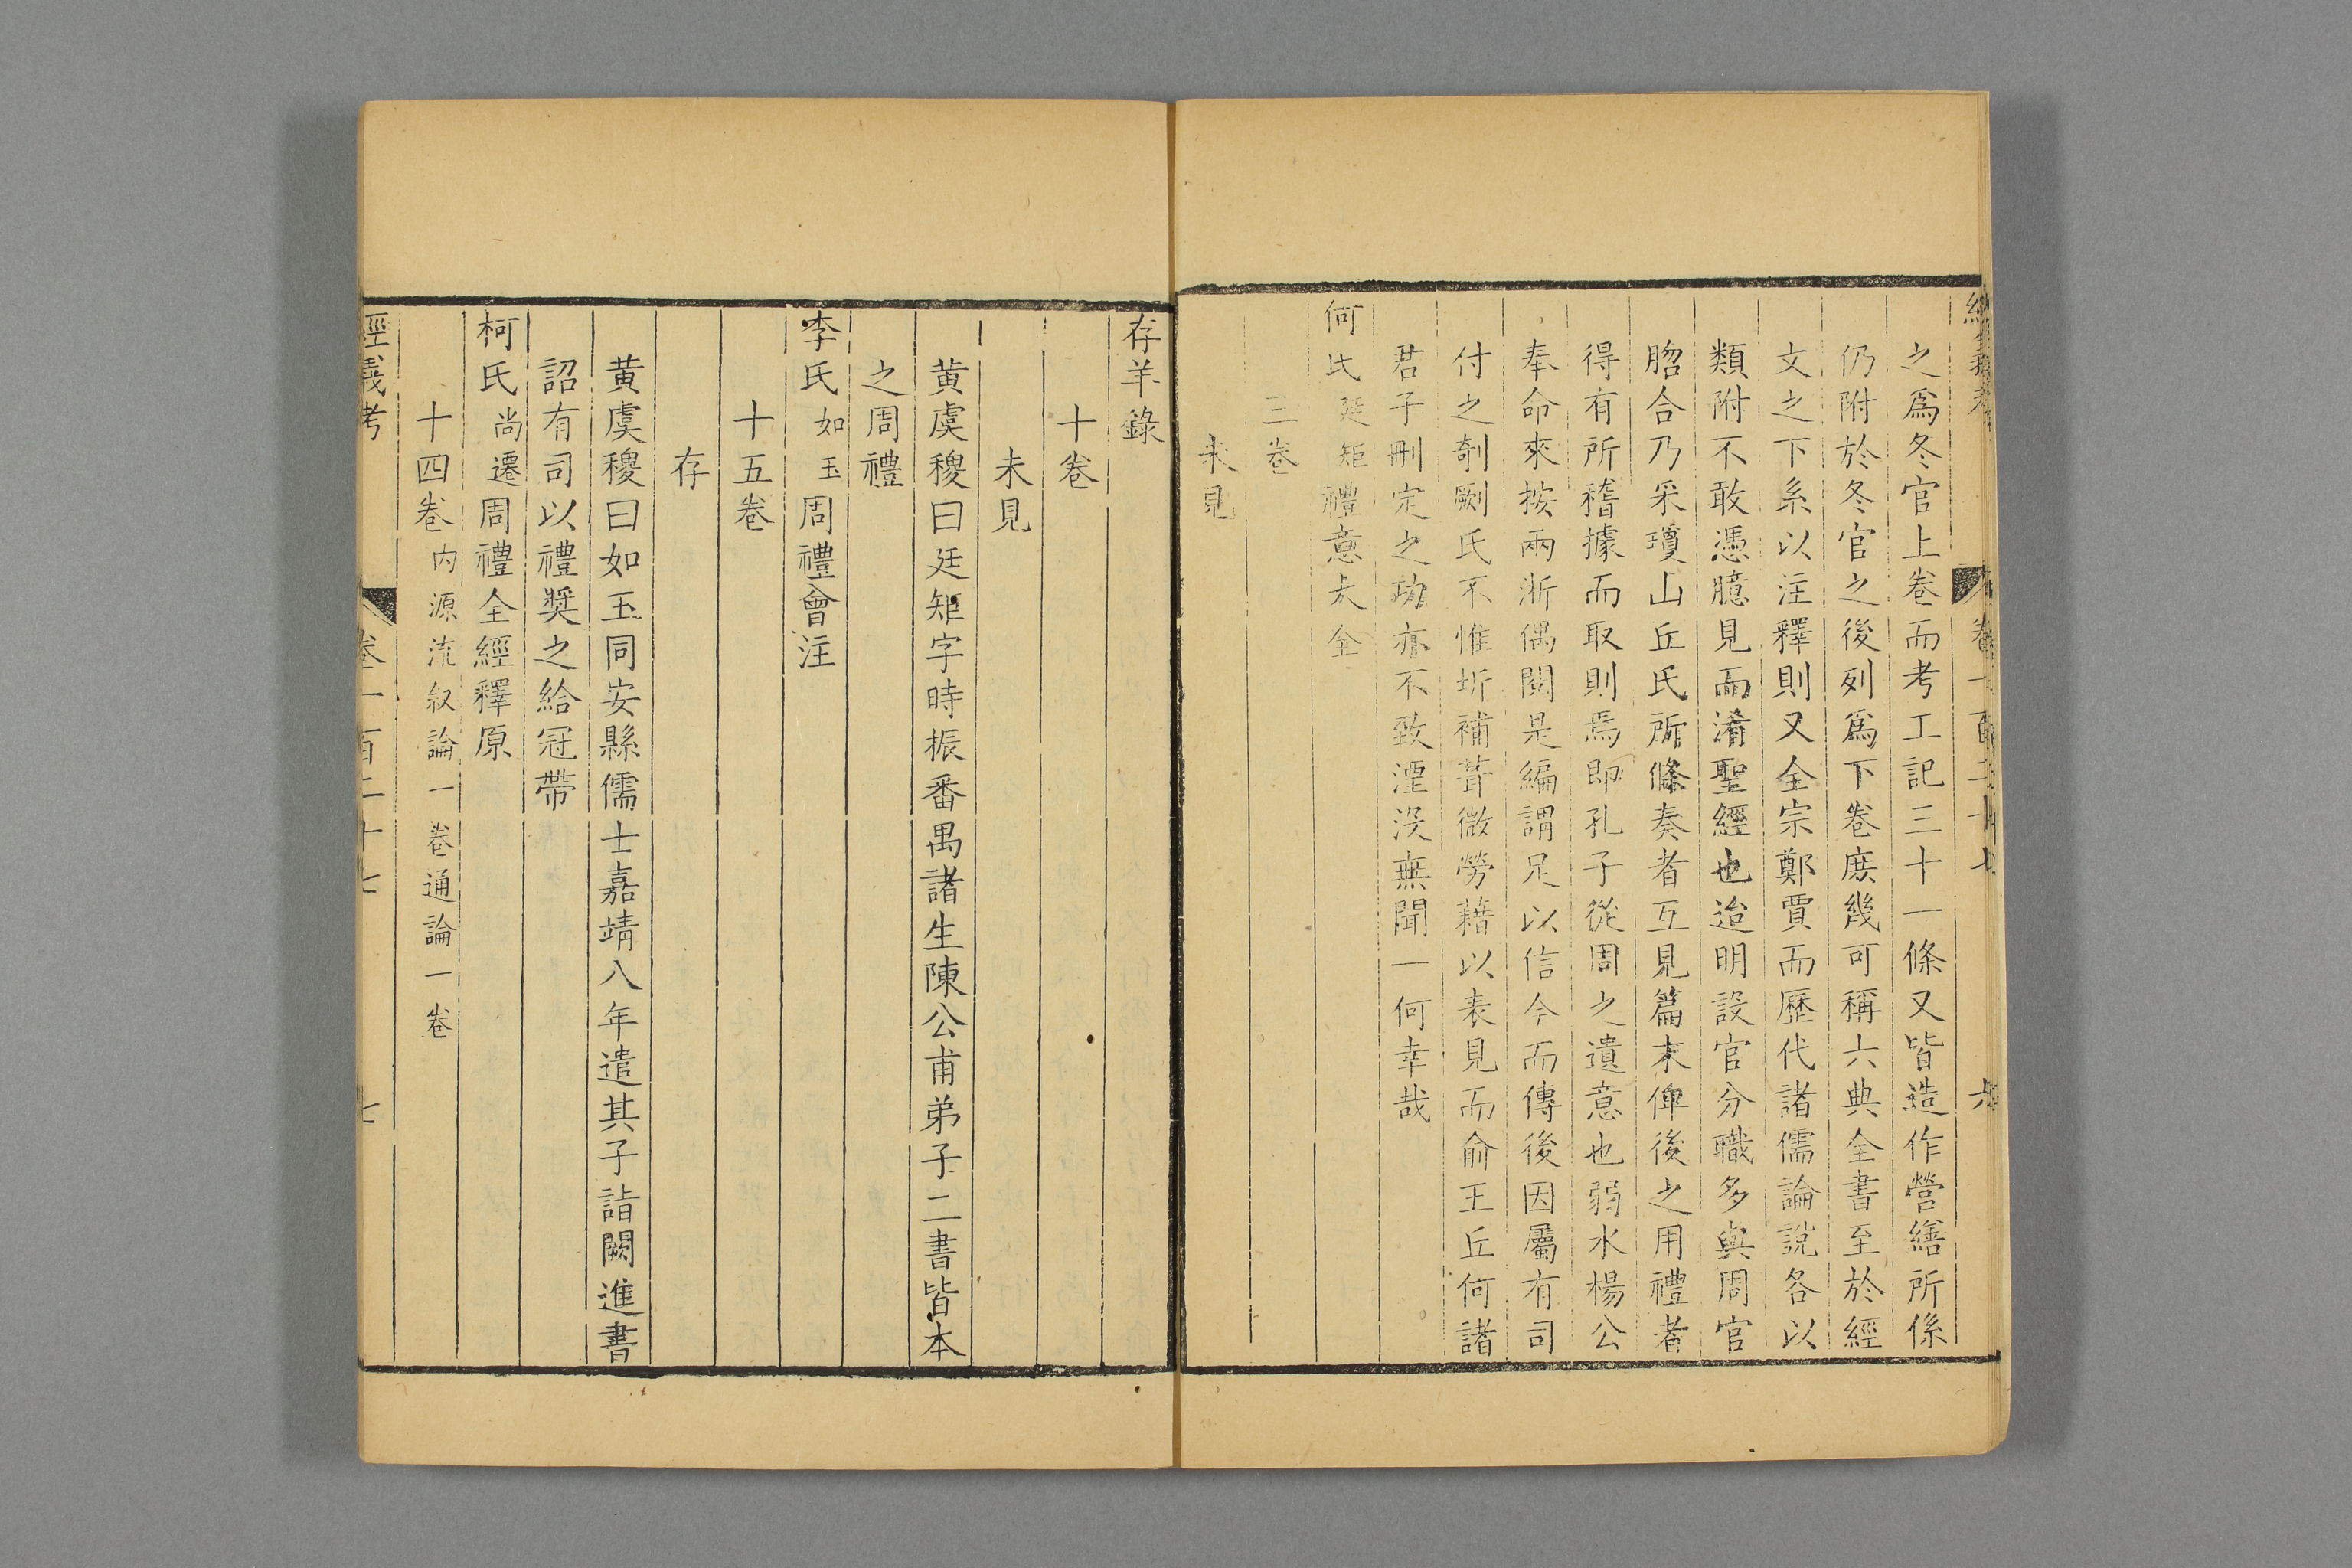 經義考 卷一百二十七 六
之爲冬官上卷而考工記三十一條又皆造作營繕所係
仍附於冬官之後列爲下卷庶幾可稱六典全書至於經
文之下系以注釋則又全宗鄭賈而歷代諸儒論說各以
類附不敢憑臆見而淆聖經也迨明設官分職多與周官
脗合乃采瓊山丘氏所條奏者互見篇末俾後之用禮者
得有所稽據而取則焉即孔子從周之遺意也弱水楊公
奉命來按兩浙偶閱是編謂足以信今而傳後因屬有司
付之剞劂氏不惟圻補葺微勞藉以表見而俞王丘何諸
君子刪定之功亦不致湮没無聞一何幸哉
何氏廷矩禮意大全
三卷
未見
存羊錄
十卷
未見
黃虞稷曰廷矩字時振番禺諸生陳公甫弟子二書皆本
之周禮
李氏如玉周禮會注
十五卷
存
黃虞稷曰如玉同安縣儒士嘉靖八年遣其子詣闕進書
詔有司以禮獎之給冠帶
柯氏尚遷周禮全經釋原
十四卷内源流叙論一卷通論一卷
經義考 卷一百二十七 七